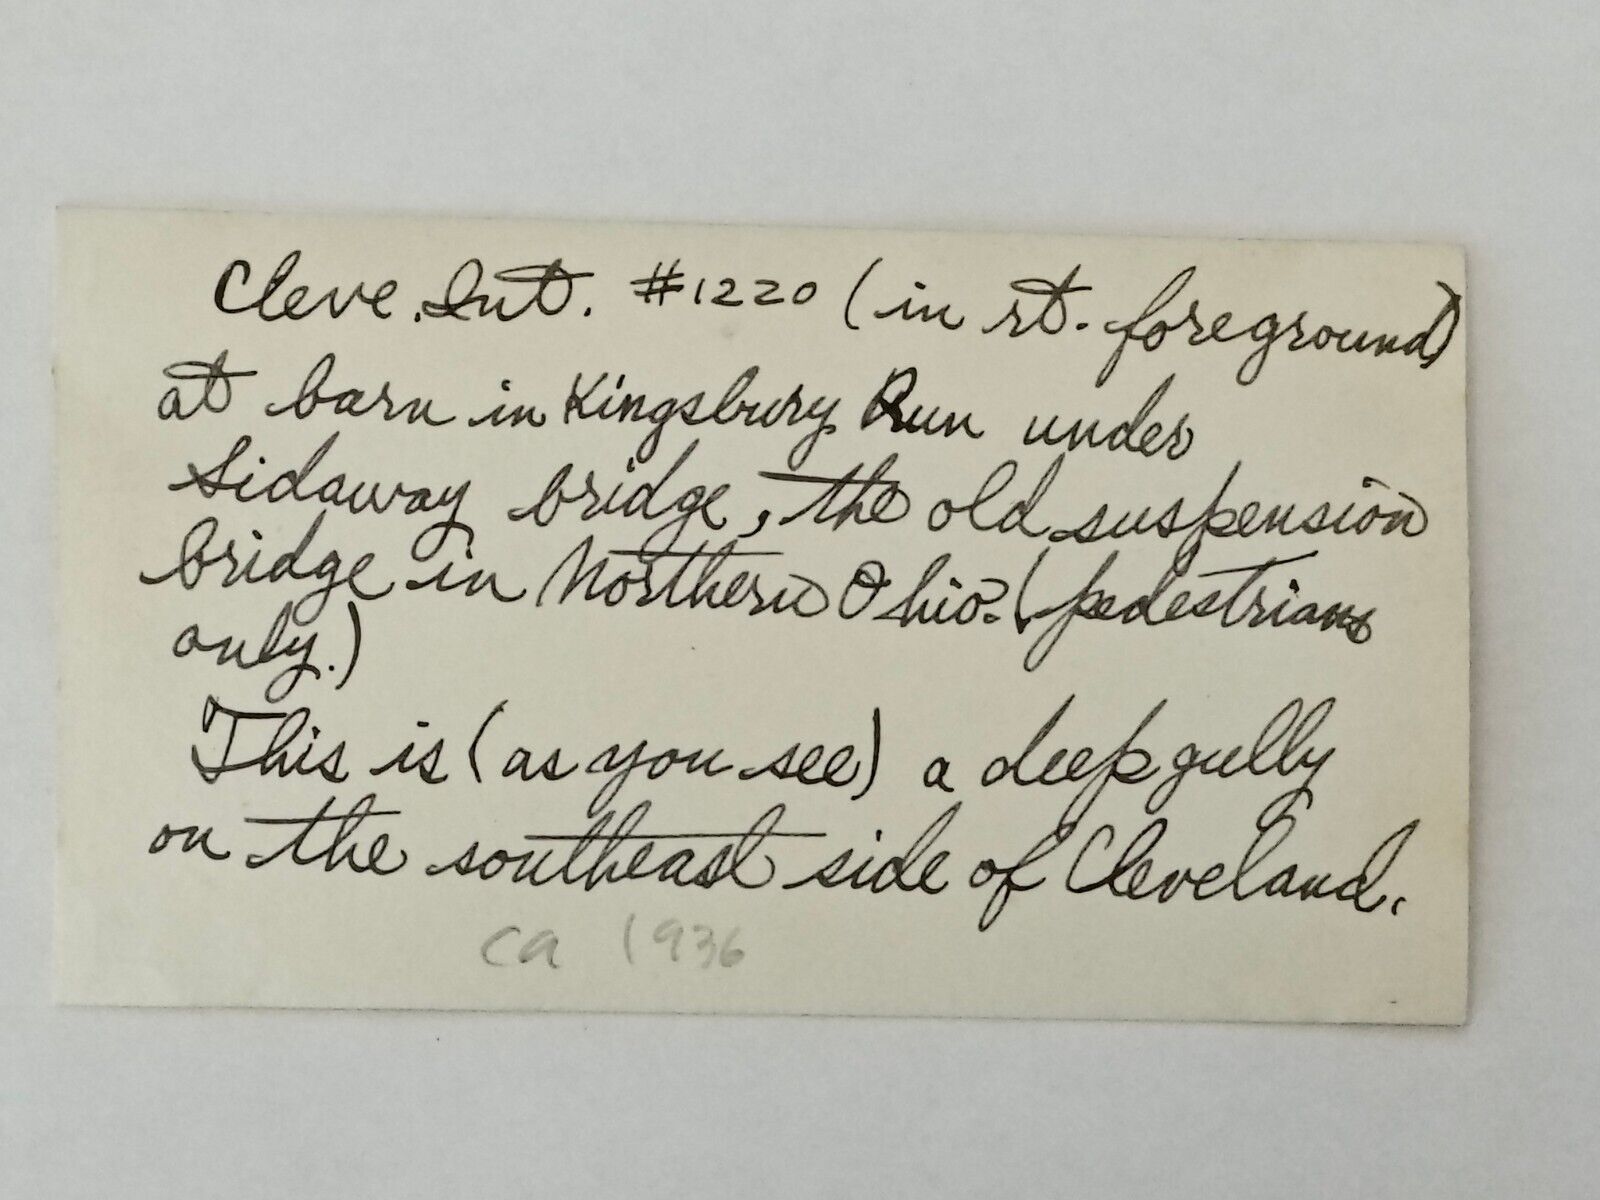 Cleve. Int. #1220 (in rt. foreground)
at barn in Kingsbury Run under
Sidaway bridge, the old suspension
bridge in Northern Ohio. (pedestrians
only.)
This is (as you see) a deep gully
on the southeast side of Cleveland.
ca 1936